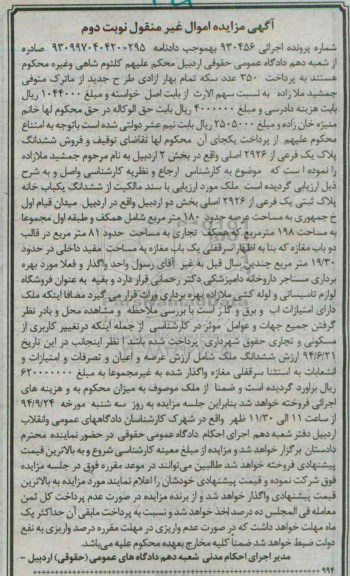 آگهی مزایده اموال غیر منقول نوبت دوم
شماره پرونده اجرائی ۹۳۰۴۵۶ بهموجب دادنامه ۹۳۰۹۹۷۰۴۰۴۲۰۰۲۹۵ صادره
از شعبه دهم دادگاه عمومی حقوقی اردبیل محکم علیهم کلثوم شاهی وغیره محکوم
هستند به پرداخت ۳۵۰ عدد سکه تمام بهار ازادی طرح جدید از ماترک متوفی
جمشید ملا زاده به نسبت سهم الارث از بابت اصل خواسته و مبلغ ۱۰۴۴۰۰۰ ریال
بابت هزینه دادرسی و مبلغ ۴۰۰۰۰۰۰ ریال بابت حق الوکاله در حق محکوم لها خانم
منیژه خان زاده و مبلغ ۲۵۰۵۰۰۰ ریال بابت نیم عشر دولتی شده است باتوجه به امتناع
محکوم علیهم از پرداخت یکجای آن محکوم لها تقاضای توقیف و فروش ششدانگ
پلاک یک فرعی از ۲۹۲۶ اصلی واقع در بخش ۲ اردبیل به نام مرحوم جمشید ملازاده
را نموده است که موضوع به کارشناس ارجاع و نظریه کارشناسی واصل و به شرح
ذیل ارزیابی گردیده است ملک مورد ارزیابی با سند مالکیت از ششدانگ یکباب خانه
پلاک ثبتی یک فرعی از ۲۹۲۶ اصلی بخش دو اردبیل واقع در اردبیل میدان قیام اول
خ جمهوری به مساحت عرصه حدود ۱۸۰ متر مربع شامل همکف و طبقه اول مجموعا
به مساحت ۱۹۸ مترمربع که همکف تجاری به مساحت حدود ۸۱ متر مربع در قالب
دو باب مغازه که بنا به اظهار سرقفلی یک باب مغازه به مساحت مفید داخلی در حدود
۱۹/۳۰ متر مربع چندین سال قبل به غیر آقای رسول واحد واگذار و فعلا مورد بهره
برداری مستاجر داروخانه دامپزشکی دکتر رحمانی قرار دارد و بقیه به عنوان فروشگاه
لوازم تاسیساتی و لوله کشی ملازاده بهره برداری وراث قرار می گیرد مضافا اینکه ملک
دارای امتیازات اب و برق و گاز است با بررسی ملاحظه و مشاهده محل و بادر نظر
گرفتن جمیع جهات و عوامل موثر در کارشناسی از جمله اینکه درتغییر کاربری از
مسکونی و تجاری حقوق شهرداری پرداخت شده باشد ا نظر اینجانب در این تاریخ
۹۴/۶/۲۱ ارزش ششدانگ ملک شامل ارزش عرصه و اعیان و تصرفات و امتیازات و
انشعابات به استثنا سرقفلی مغازه واگذار شده به غیرمجموعا به مبلغ ۶۲۰۰۰۰۰۰۰۰
ریال براورد گردیده است و ضمنا از ملک موصوف به میزان محکوم به و هزینه های
اجرائی فروخته خواهد شد بنابراین جلسه مزایده به روز سه شنبه مورخه ۹۴/۹/۲۴
از ساعت ۱۱ الی ۱۱/۳۰ ظهر واقع در شهرک کارشناسان دادگاههای عمومی وانقلاب
اردبیل دفتر شعبه دهم اجرای احکام دادگاه عمومی حقوقی در حضور نماینده محترم
دادستان برگزار خواهد شد و مزایده از مبلغ معینه کارشناسی شروع و به بالاترین قیمت
پیشنهادی فروخته خواهد شد طالبین می‌توانند در موعد مقرره فوق در جلسه مزایده
فوق شرکت نموده و قیمت پیشنهادی خودشان را اعلام نمایند مورد مزایده به بالاترین
قیمت پیشنهادی واگذار خواهد شد و از برنده مزایده در صورت عدم پرداخت کل ثمن
معامله فی المجلس ده درصد اخذ خواهد شد و نسبت به پرداخت مابقی آن حداکثر یک
ماه مهلت خواهد داشت که در صورت عدم واریزی در مهلت مقرره درصد واریزی به نفع
دولت ضبط خواهد شد ضمناً کلیه مخارج بعهده محکوم علیه می‌باشد.
مدیر اجرای احکام مدنی شعبه دهم دادگاه های عمومی (حقوقی) اردبیل -
۹۹۴